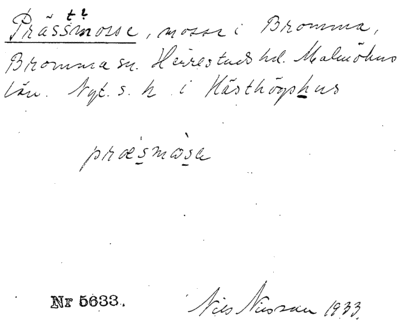 Prässmosse, mosse i Bromma,
Bromma sn. Herrestads hd. Malmöhus
län. Nyt. s. k. i Hästhögshus
præsmåsa
Nr 5633. Nils Nilsson 1933.